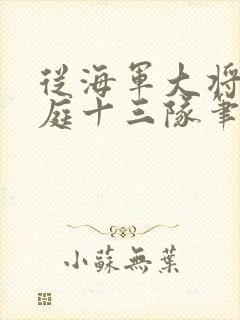 從海軍大將
庭十三隊筆
小蘇無葉